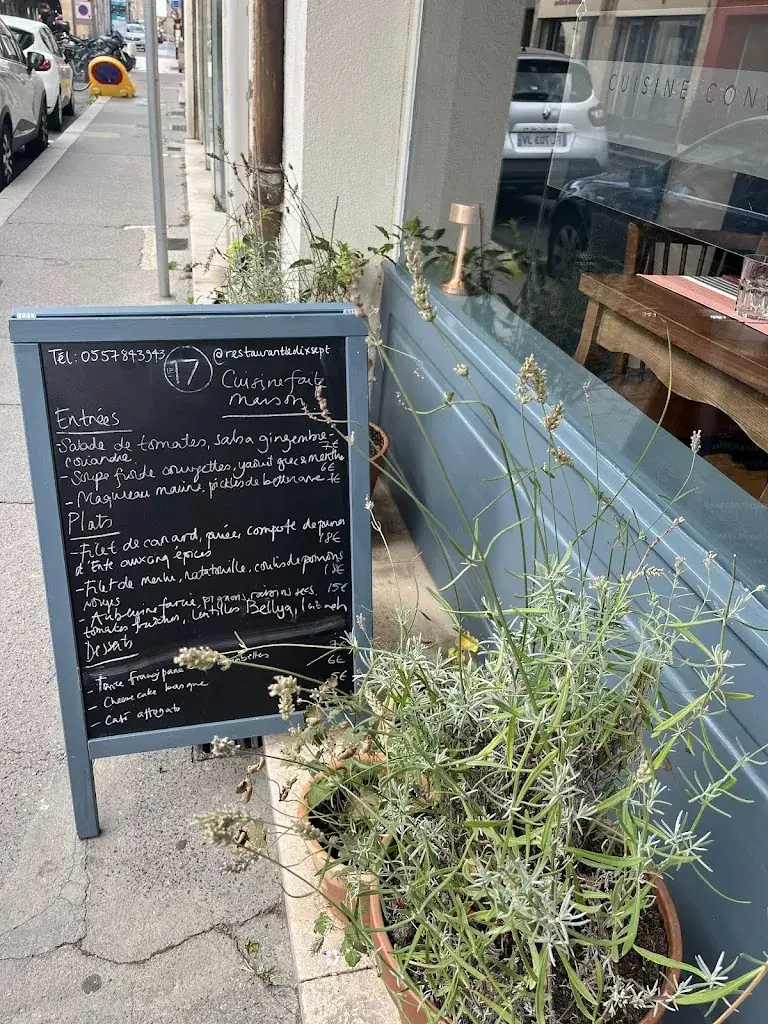 CUISINE CON
Tél: 0557843943
LE 17
@restaurantledixsept
Cuisine faite
maison
Entrées
-Salade de tomates, salsa gingembre-
coriandre 7€
- Soupe froide courgettes, yaourt grec & menthe
6€
- Maquereau mariné, pickles de betterave 7€
Plats
- Filet de canard, purée, compotée de prunes
d'Ente aux cinq épices 18€
- Filet de merlu, ratatouille, coulis de poivrons
rouges 18€
- Aubergine farcie, pignons, raisins secs, 15€
tomates fraîches, lentilles Beluga,
Desserts
- Tarte frangipane
6€
- Cheesecake basque
5€
- Café affogato